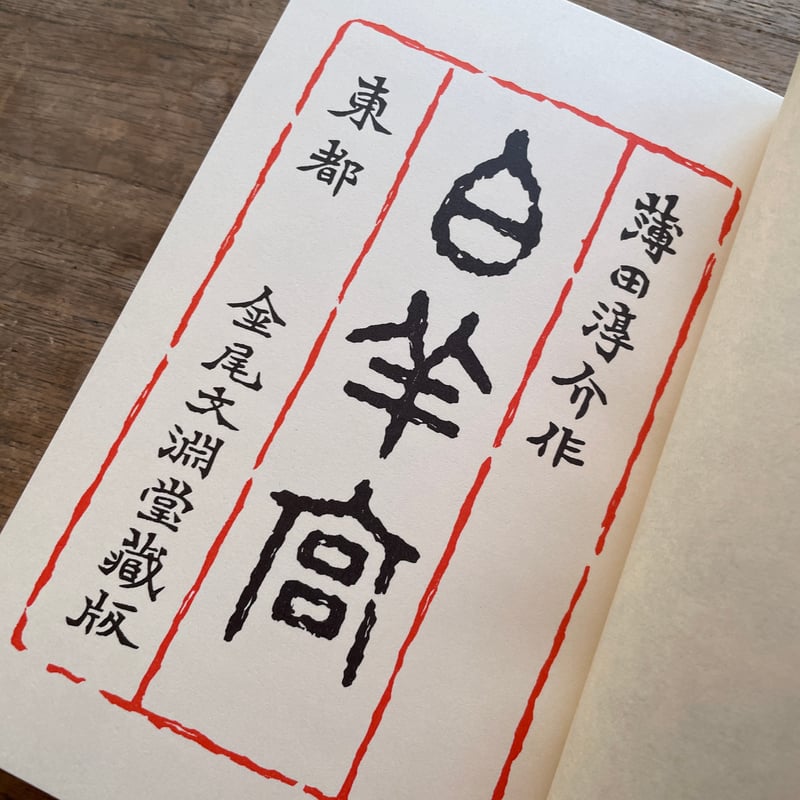 薄田淳介作
白羊宮
東都
金尾文淵堂藏版